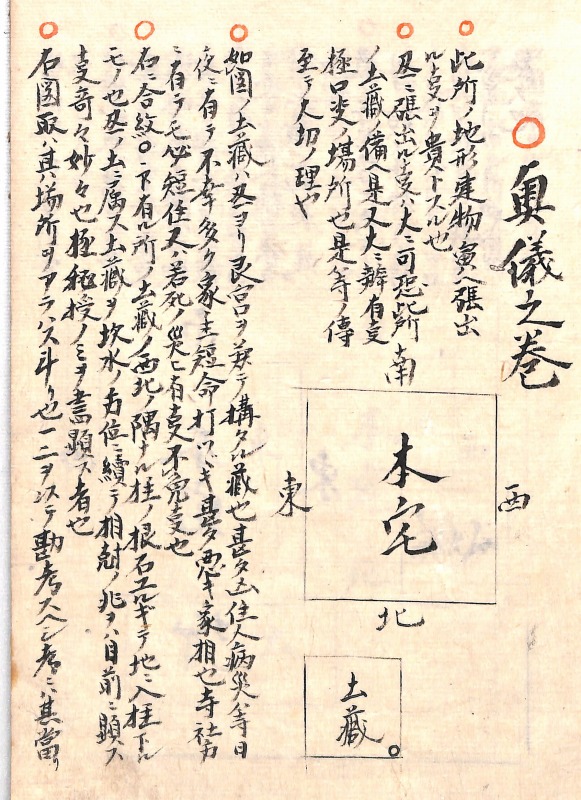 奥儀之巻
此所ノ地形建物寅ヘ張出
ル事ヲ貴トスル也
丑ニ張出ル事ハ大ニ可恐此所
ノ土蔵ノ備ヘ是又大ニ辨有事
極口受ノ場所也是等ノ傳
至テ大切ノ理也
南
西
本宅
東
北
土蔵
如図ノ土蔵ハ丑ヨリ艮宮ヲ兼テ構タル蔵也甚タ凶住人病災等日
夜ニ有テ不幸多ク家主短命打ツヾキ甚タ悪キ家相也寺社方
ニ有テモ必短住又ハ若死ノ災ニ有事不免事也
右ニ合紋〇下有ル所ノ土蔵ノ西北ノ隅ナル柱ノ根石ユルギテ地ニ入柱下ル
モノ也丑ノ土ニ属ス土蔵ヲ坎水ノ方位ニ續テ相尅ノ兆ヲハ目前ニ顕ス
事奇々妙々也極秘授ノミヲ書顕ス者也
右図取ハ其場所ヲアラハス斗リ也一二ヲ以テ勘考スヘシ考ニハ其當リ